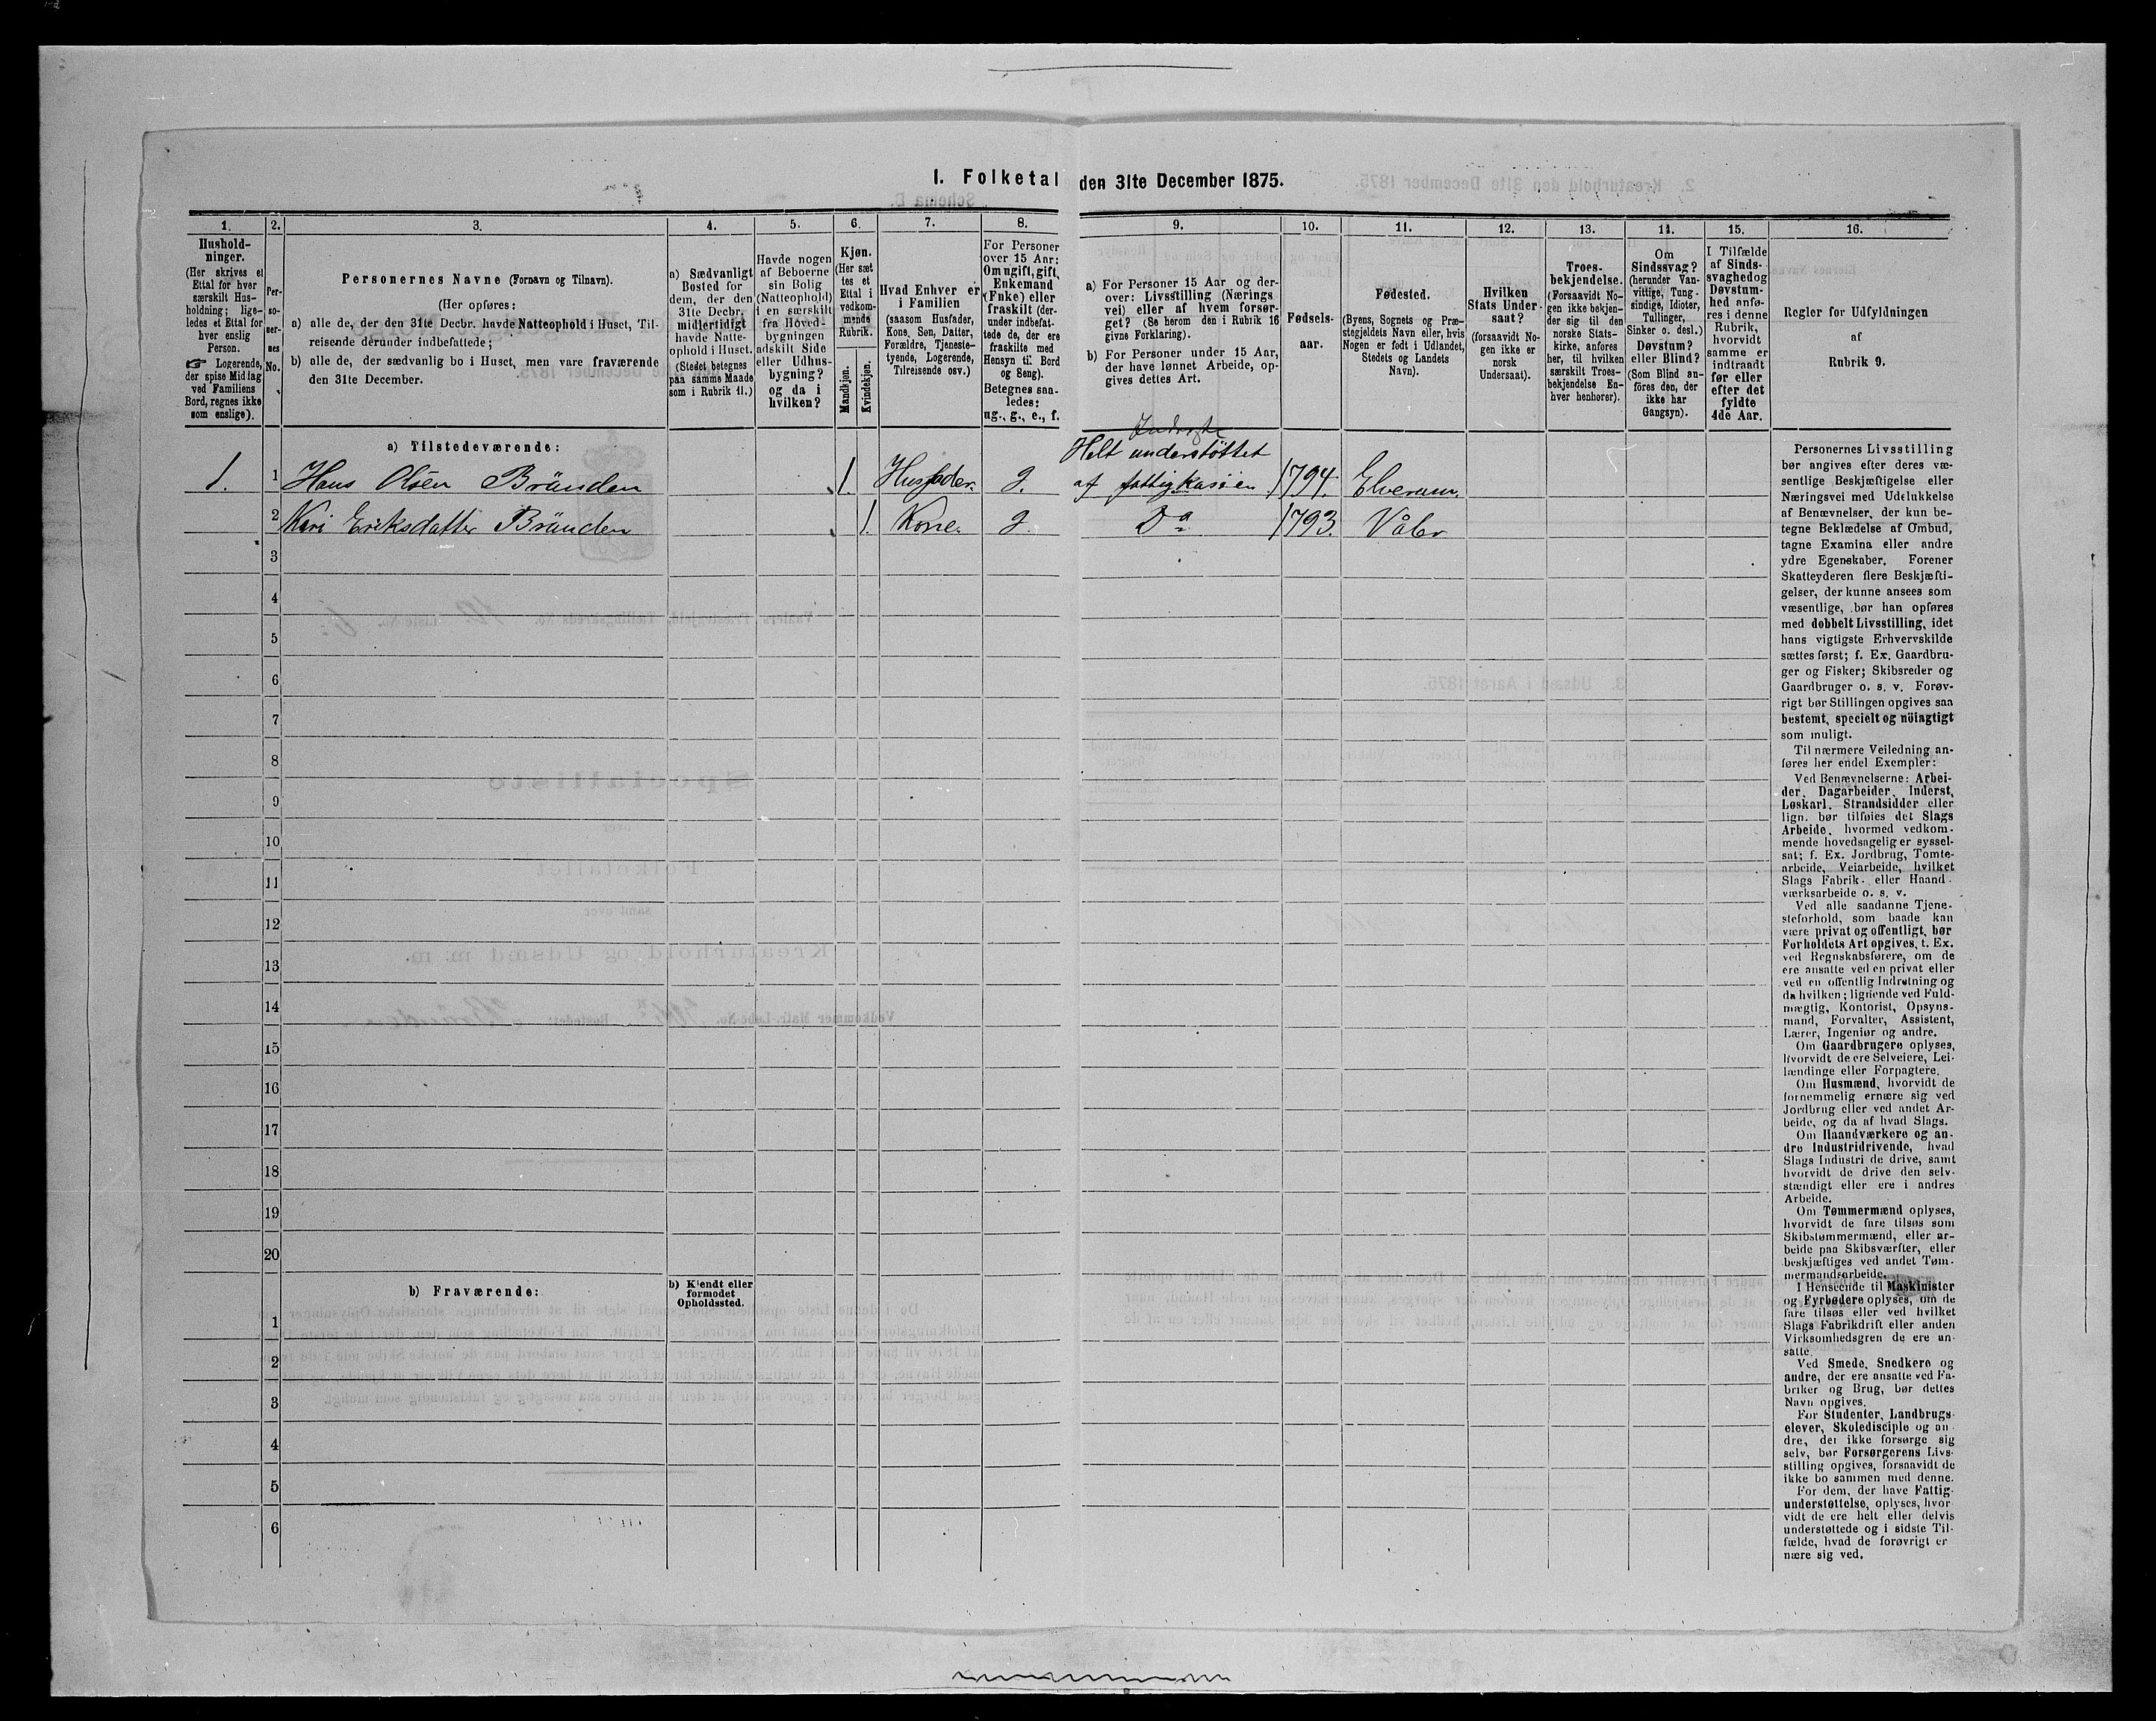 I. Folketal den 31te December 1875.
1.
Hushold-
ninger.
(Her skrives et
Ettal for hver
særskilt Hus-
holdning; lige-
ledes et Ettal for
hver enslig
Person.
☞ Logerende,
der spise Middag
ved Familiens
Bord, regnes ikke
som enslige).
2.
Per-
so-
ner-
nes
No.
3.
Personernes Navne (Fornavn og Tilnavn).
(Her opføres:
a) alle de, der den 31te Decbr. havde Natteophold i Huset, Til-
reisende derunder indbefattede;
b) alle de, der sædvanlig bo i Huset, men vare fraværende
den 31te December.
4.
a) Sædvanligt
Bosted for
dem, der den
31te Decbr.
midlertidigt
havde Natte-
ophold i Huset.
(Stedet betegnes
paa samme Maade
som i Rubrik 11.)
5.
Havde nogen
af Beboerne
sin Bolig
(Natteophold)
i en særskilt
fra Hoved-
bygningen
adskilt Side
eller Udhus-
bygning?
og da i
hvilken?
6.
Kjøn.
(Her sæt
tes et
Ettal i
vedkom-
mende
Rubrik.
Mandkjøn.
Kvindekjøn.
7.
Hvad Enhver er
i Familien
(saasom Husfader,
Kone, Søn, Datter,
Forældre, Tjeneste-
tyende, Logerende,
Tilreisende osv.)
8.
For Personer
over 15 Aar:
Om ugift, gift,
Enkemand
(Enke) eller
fraskilt (der-
under indbefat-
tede de, der ere
fraskilte med
Hensyn til Bord
og Seng).
Betegnes saa-
ledes:
ug., g., e., f.
9.
a) For Personer 15 Aar og der-
over: Livsstilling (Nærings
vei) eller af hvem forsør-
get? (Se herom den i Rubrik 16
givne Forklaring).
b) For Personer under 15 Aar,
der have lønnet Arbeide, op-
gives dettes Art.
10.
Fødsels-
aar.
11.
Fødested.
(Byens, Sognets og Præ-
stegjeldets Navn eller, hvis
Nogen er født i Udlandet,
Stedets og Landets
Navn).
12.
Hvilken
Stats Under-
saat?
(forsaavidt No-
gen ikke er
norsk
Undersaat).
13.
Troes-
bekjendelse.
(Forsaavidt No-
gen ikke bekjen-
der sig til den
norske Stats-
kirke, anføres
her, til hvilken
særskilt Troes-
bekjendelse En-
hver henhører).
14.
Om
Sindssvag?
(herunder Van-
vittige, Tung-
sindige, Idioter,
Tullinger,
Sinker o. desl.)
Døvstum?
eller Blind?
(Som Blind an-
føres den, der
ikke har
Gangsyn).
15.
I Tilfælde
af Sinds-
svaghed og
Døvstum-
hed anfø-
res i denne
Rubrik,
hvorvidt
samme er
indtraadt
før eller
efter det
fyldte
4de Aar.
16.
Regler for Udfyldningen
af
Rubrik 9.
a) Tilstedeværende:
Helt understöttet
1. 1 Hans Olsen Brånden 1. Husfader. g. af fattigkassen 1794. Elverum.
2 Kari Eriksdatter Brånden 1. Kone. g. Do 1793. Våler
3
4
5
6
7
8
9
10
11
12
13
14
15
16
17
18
19
20
b) Fraværende:
b) Kjendt eller
formodet
Opholdssted.
1
2
3
4
5
6
Personernes Livsstilling
bør angives efter deres væ-
sentlige Beskjæftigelse eller
Næringsvei med Udelukkelse
af Benævnelser, der kun be-
tegne Beklædelse af Ombud,
tagne Examina eller andre
ydre Egenskaber. Forener
Skatteyderen flere Beskjæfti-
gelser, der kunne ansees som
væsentlige, bør han opføres
med dobbelt Livsstilling, idet
hans vigtigste Erhvervskilde
sættes først; f. Ex. Gaardbru-
ger og Fisker; Skibsreder og
Gaardbruger o. s. v. Forøv-
rigt bør Stillingen opgives saa
bestemt, specielt og nöiagtigt
som muligt.
Til nærmere Veiledning an-
føres her endel Exempler:
Ved Benævnelserne: Arbei-
der, Dagarbeider, Inderst,
Løskarl, Strandsidder eller
lign. bør tilføies det Slags
Arbeide, hvormed vedkom-
mende hovedsagelig er syssel-
sat; f. Ex. Jordbrug, Tomte-
arbeide, Veiarbeide, hvilket
Slags Fabrik- eller Haand-
værksarbeide o. s. v.
Ved alle saadanne Tjene-
steforhold, som baade kan
være privat og offentligt, bør
Forholdets Art opgives, t. Ex.
ved Regnskabsførere, om de
ere ansatte ved en privat eller
ved en offentlig Indretning og
da hvilken; lignende ved Fuld-
mægtig, Kontorist, Opsyns-
mand, Forvalter, Assistent,
Lærer, Ingeniør og andre.
Om Gaardbrugere oplyses,
hvorvidt de ere Selveiere, Lei-
lændinge eller Forpagtere.
Om Husmænd, hvorvidt de
fornemmelig ernære sig ved
Jordbrug eller ved andet Ar-
beide, og da af hvad Slags.
Om Haandværkere og an-
dre Industridrivende, hvad
Slags Industri de drive, samt
hvorvidt de drive den selv-
stændigt eller ere i andres
Arbeide.
Om Tømmermænd oplyses,
hvorvidt de fare tilsøs som
Skibstømmermænd, eller ar-
beide paa Skibsværfter, eller
beskjæftiges ved andet Tøm-
mermandsarbeide.
I Henseende til Maskinister
og Fyrbødere oplyses, om de
fare tilsøs eller ved hvilket
Slags Fabrikdrift eller anden
Virksomhedsgren de ere an-
satte.
Ved Smede, Snedkere og
andre, der ere ansatte ved Fa-
briker og Brug, bør dettes
Navn opgives.
For Studenter, Landbrugs-
elever, Skoledisciple og an-
dre, der ikke forsørge sig
selv, bør Forsørgerens Livs-
stilling opgives, forsaavidt de
ikke bo sammen med denne.
For dem, der have Fattig-
understøttelse, oplyses, hvor-
vidt de ere helt eller delvis
understøttede og i sidste Til-
fælde, hvad de forøvrigt er-
nære sig ved.